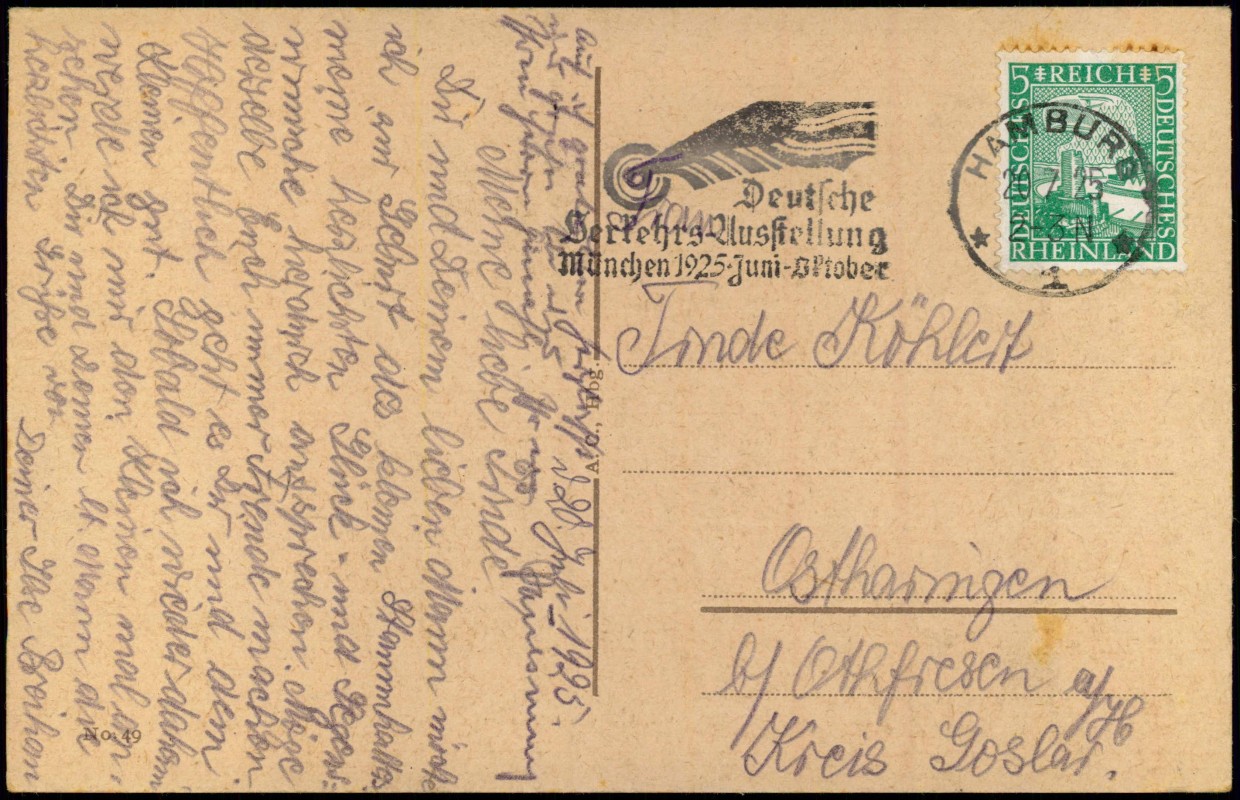 5 REICH 5
DEUTSCHES
DEUTSCHES
RHEINLAND
HAMBURG
1
Deutsche
Verkehrs-Ausstellung
München 1925-Juni-Oktober
Frau
Linde Köhlert
Ostharingen
b/ Othfresen a/H
Kreis Goslar.
A. C., Hbg.
No: 49
d. 20. Juli 1925.
Meine liebe Linde
Dir und Deinem lieben Mann möchte
ich zur Geburt des kleinen Stammhalters
meine herzlichsten Glück- und Segens-
wünsche hierdurch aussprechen. Möge
derselbe Euch immer Freude machen
Hoffentlich geht es Dir und dem
Kleinen gut. Sobald ich wieder daheim
werde ich mir den Kleinen mal an-
sehen. Dir und Deinem lb. Mann die
herzlichsten Grüße von
Deiner Ilse